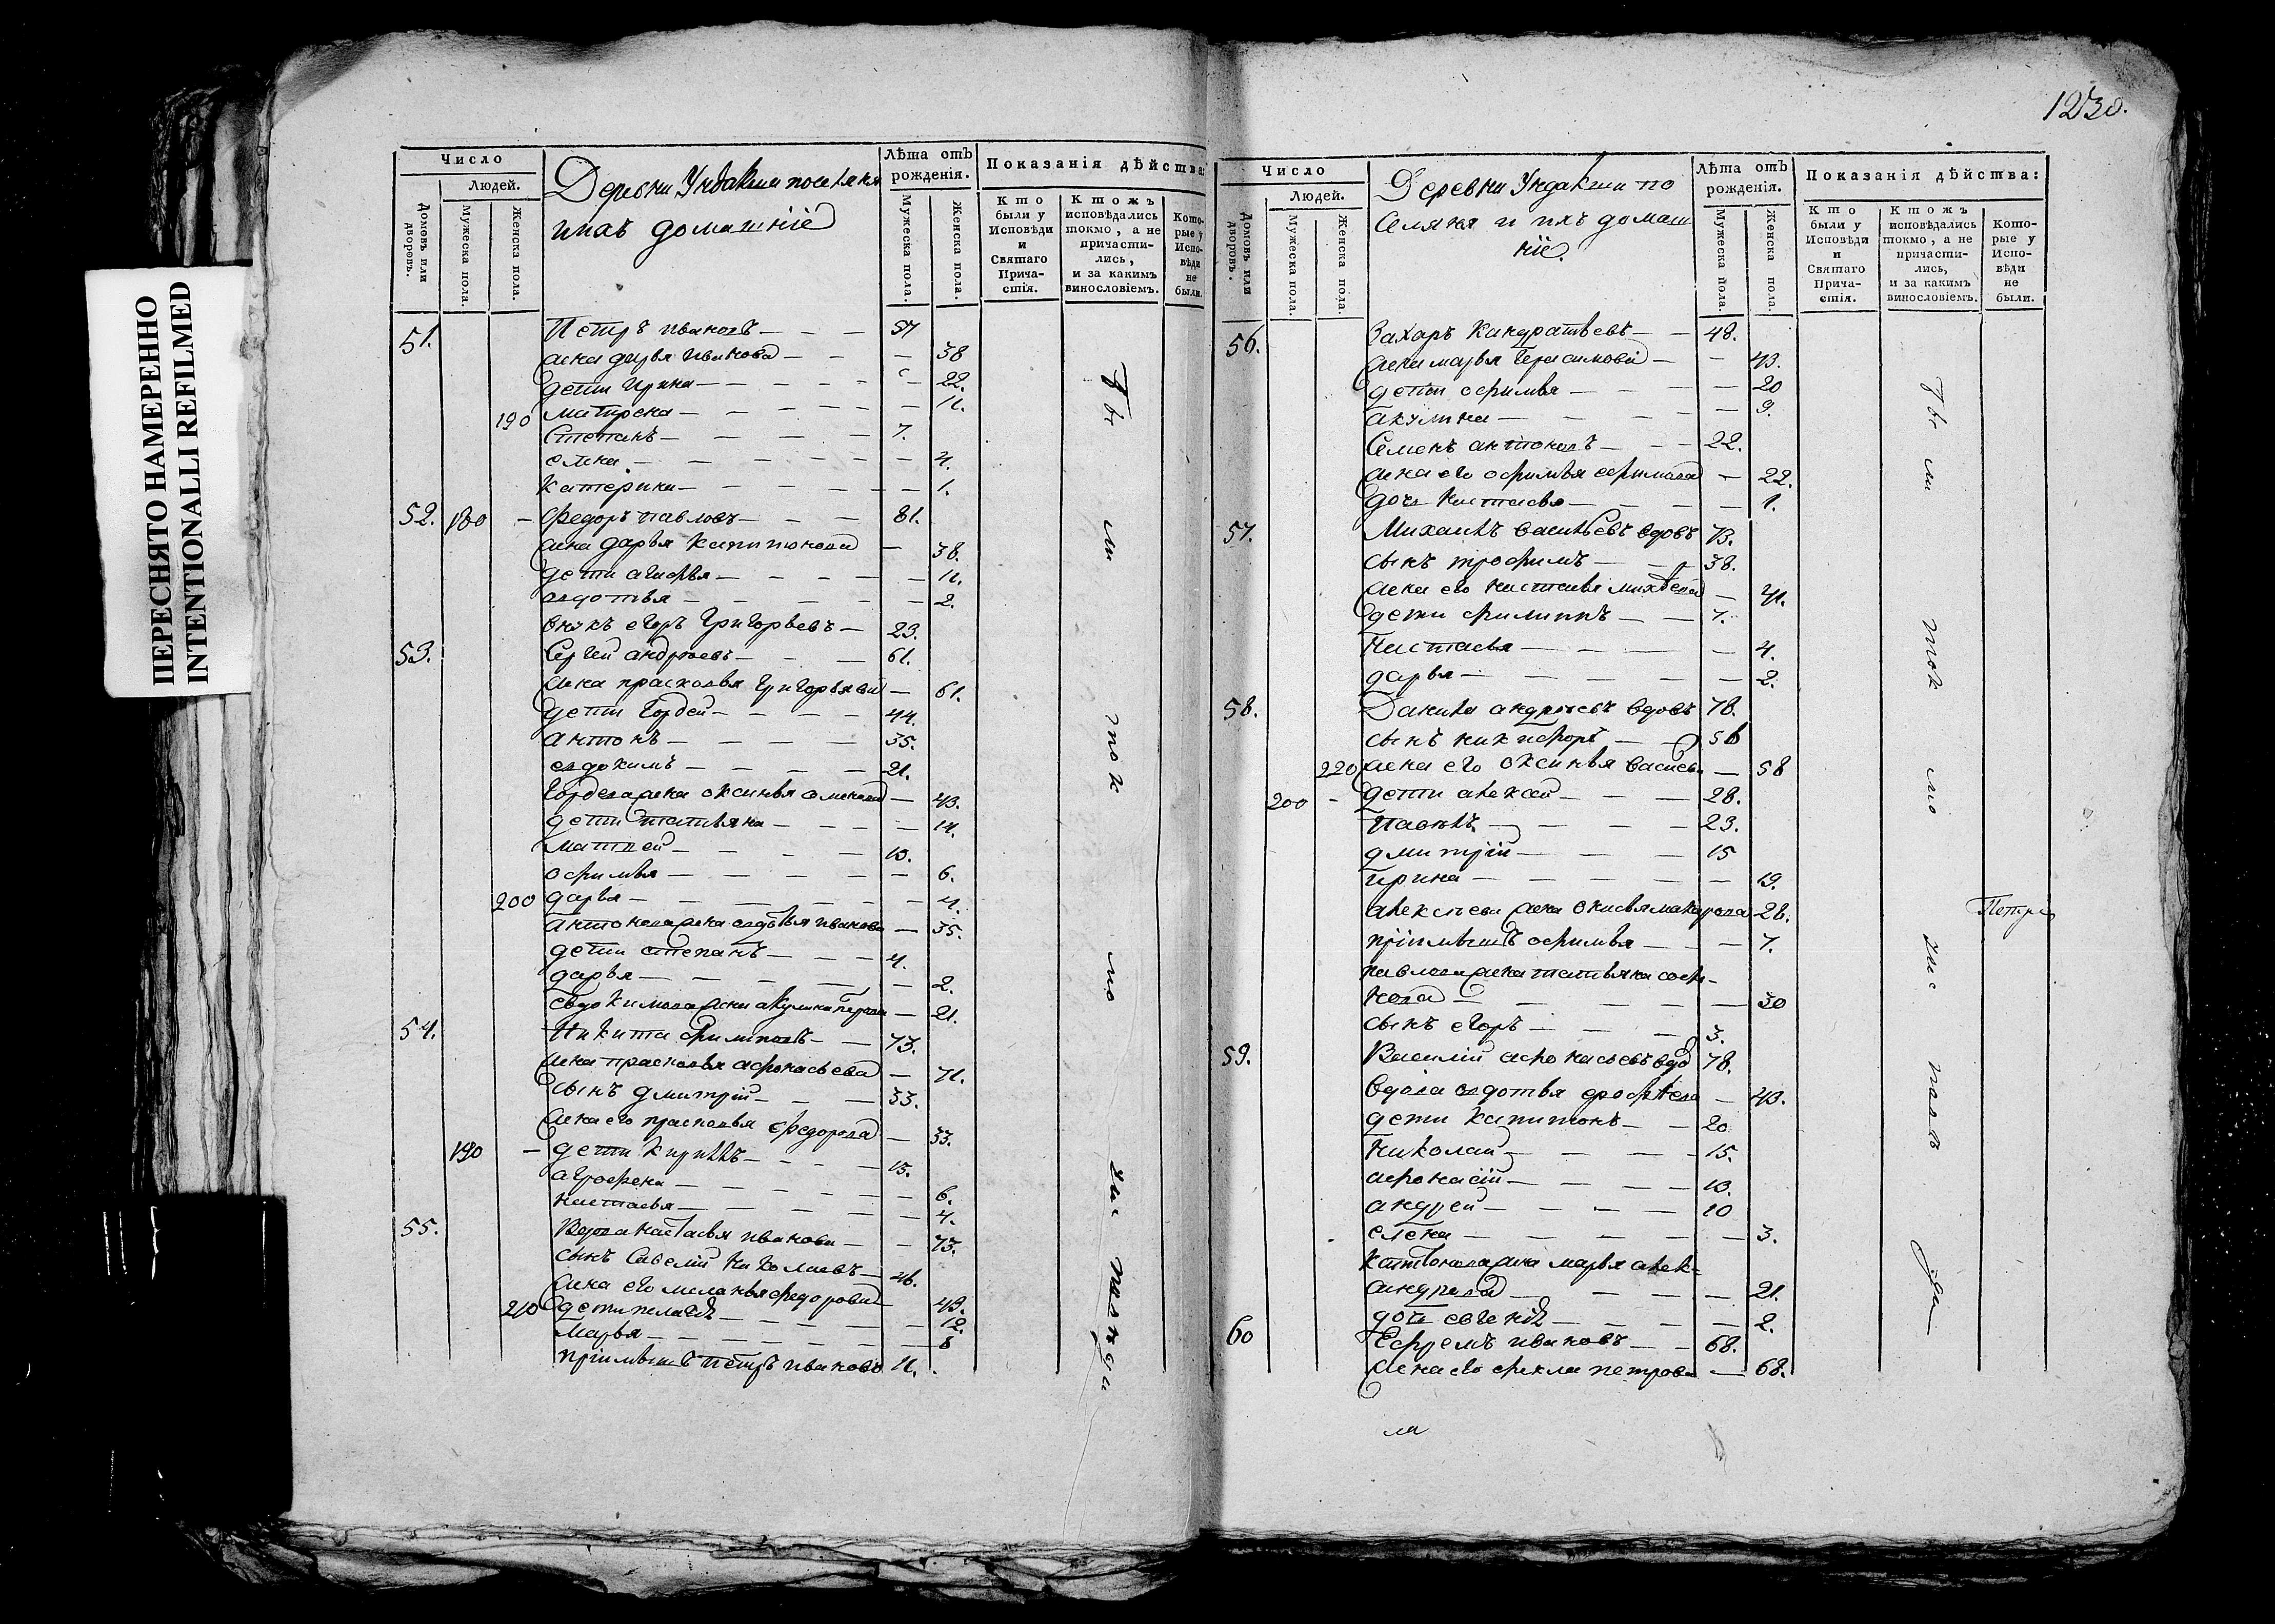 1230.
ПЕРЕСНЯТО НАМЕРЕННО
INTENTIONALLI REFILMED
Число
Людей.
Домовъ или дворовъ.
Мужеска пола.
Женска пола.
Деревни Ундакши поселяня
ихъ домашніе
Лѣта отъ рожденія.
Мужеска пола.
Женска пола.
Показанія дѣйства:
Кто были у Исповѣди и Святаго Прича-стія.
Ктожъ исповѣдались токмо, а не причасти-лись, и за какимъ винословіемъ.
Кото-рые у Испо-вѣди не были.
51. Петръ ивановъ 57
жена дарья иванова 38
дети ирина 22.
190 матрена 11.
Степанъ 7.
елена 4.
катерина 1.
52. 180 Федоръ павловъ 81.
жена дарья капитонова 38.
дети агафья 11.
авдотья 2.
внукъ егоръ григорьевъ 23.
53. Сергей андреевъ 61.
жена прасковья григорьева 61.
дети гордей 44.
антонъ 35.
евдокимъ 21.
гордеева жена оксинья 43.
дети татьяна 14.
матвей 13.
офимья 6.
200 дарья 4.
антонова жена авдотья иванова 35.
дети степанъ 4.
дарья 2.
евдокимова жена акулина 21.
54. Никита филиповъ 73.
жена прасковья афонасьева 71.
сынъ дмитрій 33.
жена его прасковья федорова 33.
190 дети кирилъ 13.
агрофена 6.
настасья 4.
55. Вдова настасья иванова 73.
сынъ савелій николаевъ 46.
жена его меланья федорова 43.
210 дети пелагея 12.
марья 8
пріимышъ петръ ивановъ 11.
Число
Людей.
Домовъ или дворовъ.
Мужеска пола.
Женска пола.
Деревни Ундакши по
селяня и ихъ домаш
ніе.
Лѣта отъ рожденія.
Мужеска пола.
Женска пола.
Показанія дѣйства:
Кто были у Исповѣди и Святаго Прича-стія.
Ктожъ исповѣдались токмо, а не причасти-лись, и за какимъ винословіемъ.
Кото-рые у Испо-вѣди не были.
56. Захаръ кандратьевъ 48.
жена марья герасимова 43.
дети офимья 20
акулина 9.
Семенъ антоновъ 22.
жена его офимья ефимова 22.
дочь настасья 1.
57. Михаилъ васильевъ вдовъ 73.
сынъ трофимъ 38.
жена его настасья 41.
дети филиппъ 7.
настасья 4.
дарья 2.
58. Данила андреевъ вдовъ 78.
сынъ никифоръ 56
220 жена его оксинья 58
200 дети алексей 28.
павелъ 23.
дмитрій 15
ирина 19.
алексеева жена макарова 28.
пріимышъ офимья 7.
павлова жена татьяна софро-
нова 30
сынъ егоръ 3.
59. Василій афонасьевъ вдо 78.
вдова авдотья 43.
дети капитонъ 20
николай 15.
афонасій 13.
андрей 10
елена 3.
капитонова жена марья алек-
андрова 21.
дочь евгенія 2.
60 Ефремъ ивановъ 68.
жена его фекла петрова 68.